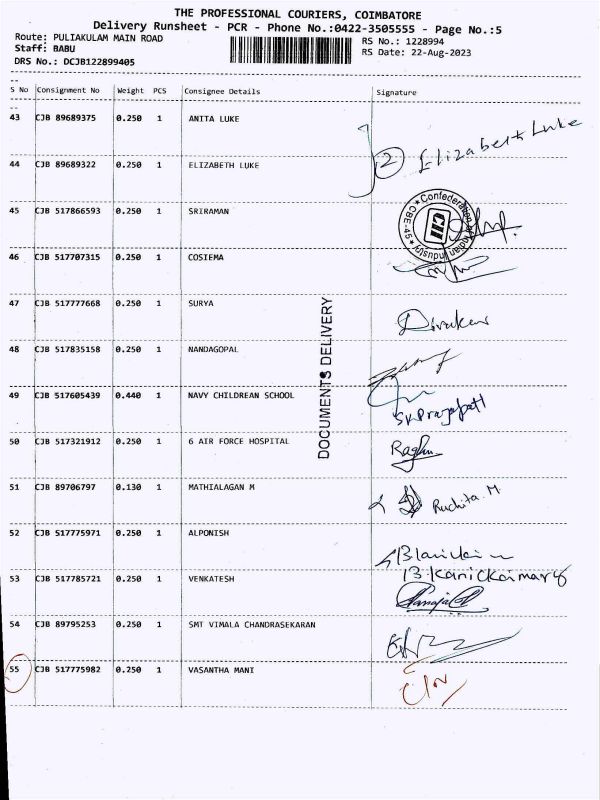 THE PROFESSIONAL COURIERS, COIMBATORE
Delivery Runsheet - PCR - Phone No.:0422-3505555 - Page No.:5
Route: PULIAKULAM MAIN ROAD
RS No.: 1228994
Staff: BABU
RS Date: 22-Aug-2023
DRS No.: DCJB122899405
S No Consignment No Weight PCS Consignee Details Signature
43 CJB 89689375 0.250 1 ANITA LUKE
2 Elizabeth Luke
44 CJB 89689322 0.250 1 ELIZABETH LUKE
45 CJB 517866593 0.250 1 SRIRAMAN
Confederation of Indian Industry ★ CBE-45 ★
CII
46 CJB 517707315 0.250 1 COSIEMA
47 CJB 517777668 0.250 1 SURYA
Divakar
DOCUMENTS DELIVERY
48 CJB 517835158 0.250 1 NANDAGOPAL
49 CJB 517605439 0.440 1 NAVY CHILDREAN SCHOOL
SK Prajapati
50 CJB 517321912 0.250 1 6 AIR FORCE HOSPITAL
Raghu
51 CJB 89706797 0.130 1 MATHIALAGAN M
Ruchita. M
52 CJB 517775971 0.250 1 ALPONISH
53 CJB 517785721 0.250 1 VENKATESH
B. Kanickaimary
54 CJB 89795253 0.250 1 SMT VIMALA CHANDRASEKARAN
55 CJB 517775982 0.250 1 VASANTHA MANI